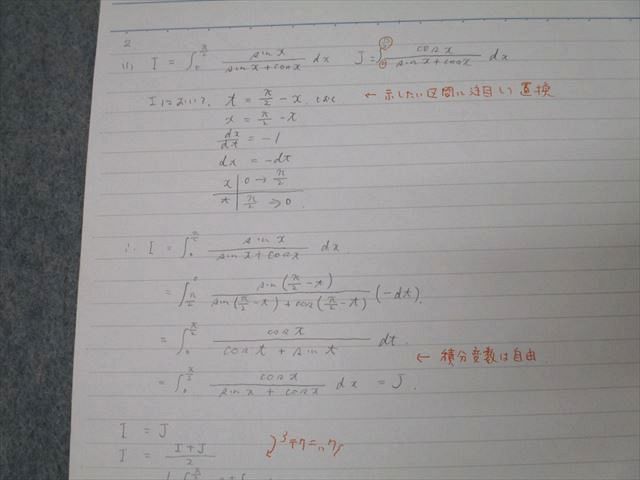 2
(1) I = ∫₀^{π/2} sin x / (sin x + cos x) dx J = ∫₀^{π/2} cos x / (sin x + cos x) dx
Iにおいて、 t = π/2 - x とおく ← 示したい区間に注目して置換
x = π/2 - t
dx/dt = -1
dx = -dt
x | 0 → π/2
t | π/2 → 0
∴ I = ∫₀^{π/2} sin x / (sin x + cos x) dx
= ∫_{π/2}^0 sin(π/2 - t) / (sin(π/2 - t) + cos(π/2 - t)) (-dt).
= ∫₀^{π/2} cos t / (cos t + sin t) dt.
← 積分変数は自由
= ∫₀^{π/2} cos x / (sin x + cos x) dx = J.
I = J
I = (I + J)/2